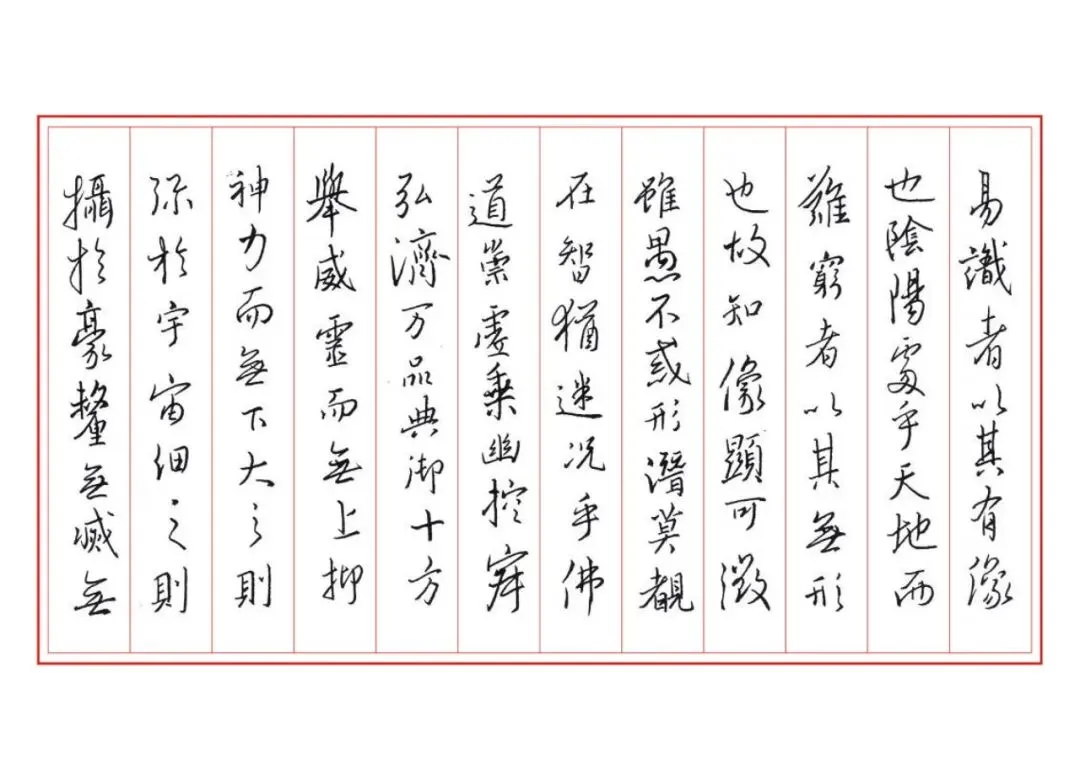 易識者以其有像
也陰陽處乎天地而
難窮者以其無形
也故知像顯可徵
雖愚不惑形潛莫覩
在智猶迷况乎佛
道崇虛乗幽控寂
弘濟万品典御十方
舉威靈而無上抑
神力而無下大之則
弥於宇宙細之則
攝於豪釐無滅無